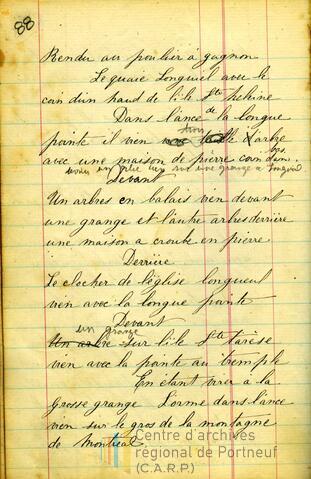 88
Rendu au poulier à gagnon
Le quaie Longueil avec le
coin d'un haud de l'ile Ste heleine
Dans l'ance de la longue
pointe il vien trois arbre
avec une maison de pierre coin
Devant
Un arbres en balais vien devant
une grange et l'autre arbes derriere
une maison a croute en pierre
Derriere
Le clocher de l'église longueul
vien avec la longue pointe
Devant
un grange
Un arbre sur l'ile Ste tarèse
vien avec la pointe au tremple
En etant virer a la
Grosse grange Lorme dans l'ance
vien sur le gros de la montagne
de Montreal
Centre d'archives
régional de Portneuf
(C.A.R.P.)